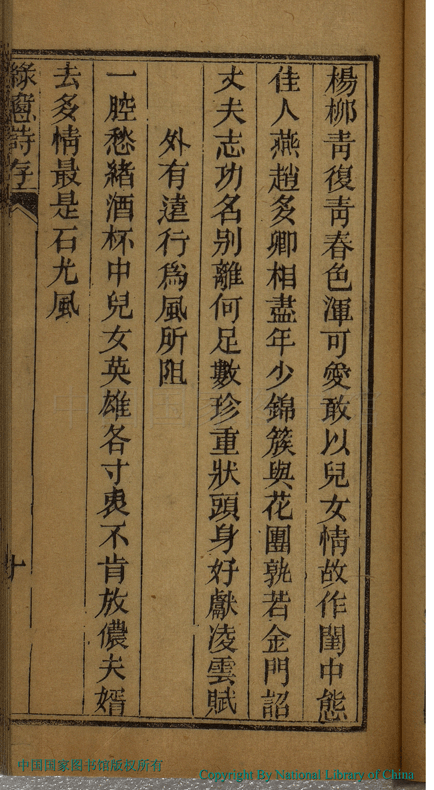 楊柳青復青春色渾可愛敢以兒女情故作閨中態
佳人燕趙多卿相盡年少錦簇與花團孰若金門詔
丈夫志功名别離何足數珍重狀頭身好獻凌雲賦
外有遠行為風所阻
一腔愁緒酒杯中兒女英雄各寸衷不肯放儂夫婿
去多情最是石尤風
綠窻詩存
十
中国国家图书馆版权所有
Copyright By National Library of China